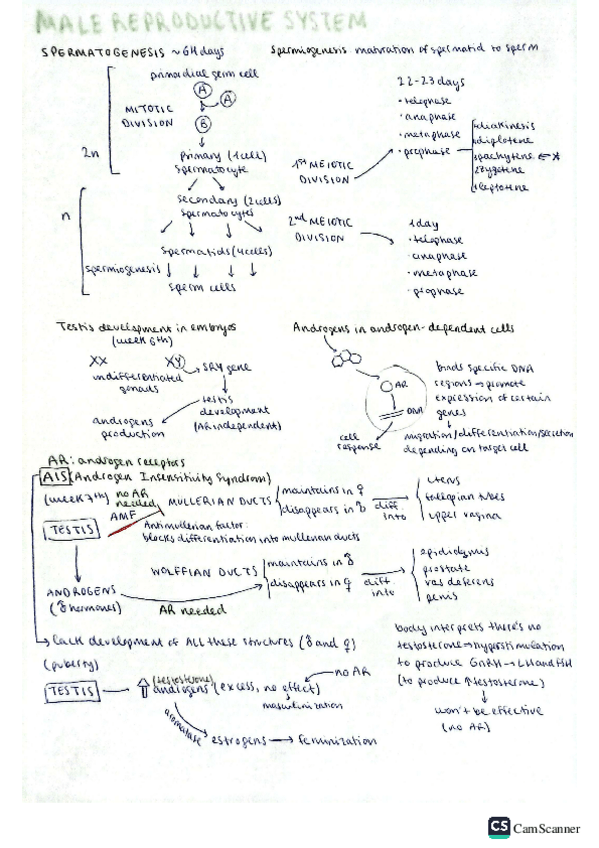 MALE REPRODUCTIVE SYSTEM
SPERMATOGENESIS ~64 days
Spermiogenesis maturation of spermatid to sperm
primordial germ cell
A
A
MITOTIC
DIVISION
B
2n
primary (1 cell)
spermatocyte
1st MEIOTIC
DIVISION
22-23 days
• telophase
• anaphase
• metaphase
• prophase
diakinesis
diplotene
pachytene
zygotene
leptotene
n
secondary (2 cells)
spermatocytes
2nd MEIOTIC
DIVISION
1 day
• telophase
• anaphase
• metaphase
• prophase
spermatids (4 cells)
spermiogenesis
sperm cells
Testis development in embryos
(week 6th)
XX
XY
undifferentiated
gonads
SRY gene
testis
development
(AR independent)
androgens
production
Androgens in androgen-dependent cells
AR
DNA
cell
response
binds specific DNA
regions → promote
expression of certain
genes
migration/differentiation/secretion
depending on target cell
AR: androgen receptors
AIS (Androgen Insensitivity Syndrom)
(week 7th)
no AR
needed
AMF
TESTIS
MULLERIAN DUCTS
maintains in ♀
disappears in ♂
diff.
into
uterus
fallopian tubes
upper vagina
Antimullerian factor:
blocks differentiation into mullerian ducts
WOLFFIAN DUCTS
maintains in ♂
disappears in ♀
diff.
into
epididymus
prostate
vas deferens
penis
ANDROGENS
(♂ hormones)
AR needed
lack development of ALL these structures (♂ and ♀)
(puberty)
TESTIS
(testosterone)
androgens (excess, no effect)
no AR
masculinization
aromatase
estrogens → feminization
body interprets there's no
testosterone → hyperstimulation
to produce GnRH → LH and FSH
(to produce ↑ testosterone)
won't be effective
(no AR)
CS CamScanner